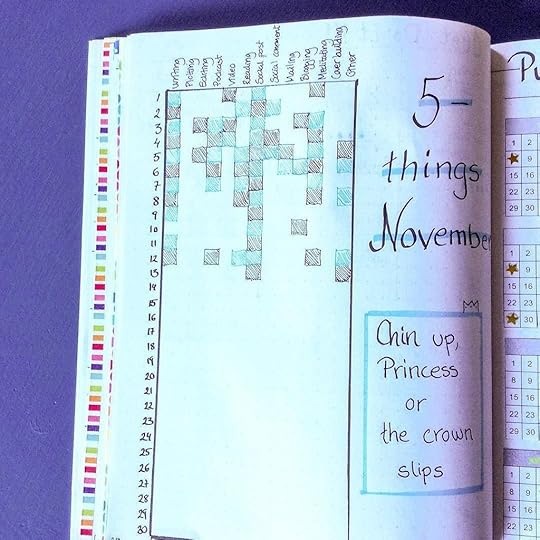 Writing
Plotting
Editing
Podcast
Video
Reading
Social post
Social comment
Mailing
Blogging
Meditating
Over building
Other
1
2
3
4
5
6
7
8
9
10
11
12
13
14
15
16
17
18
19
20
21
22
23
24
25
26
27
28
29
30
5-
things
November
Chin up,
Princess
or
the crown
slips
1 2
9
15 16
22 23
29 30
1 2
9
15 16
22 23
30
1 2
8 9
15 16
22 23
29 30
1 2
8 9
15 16
22 23